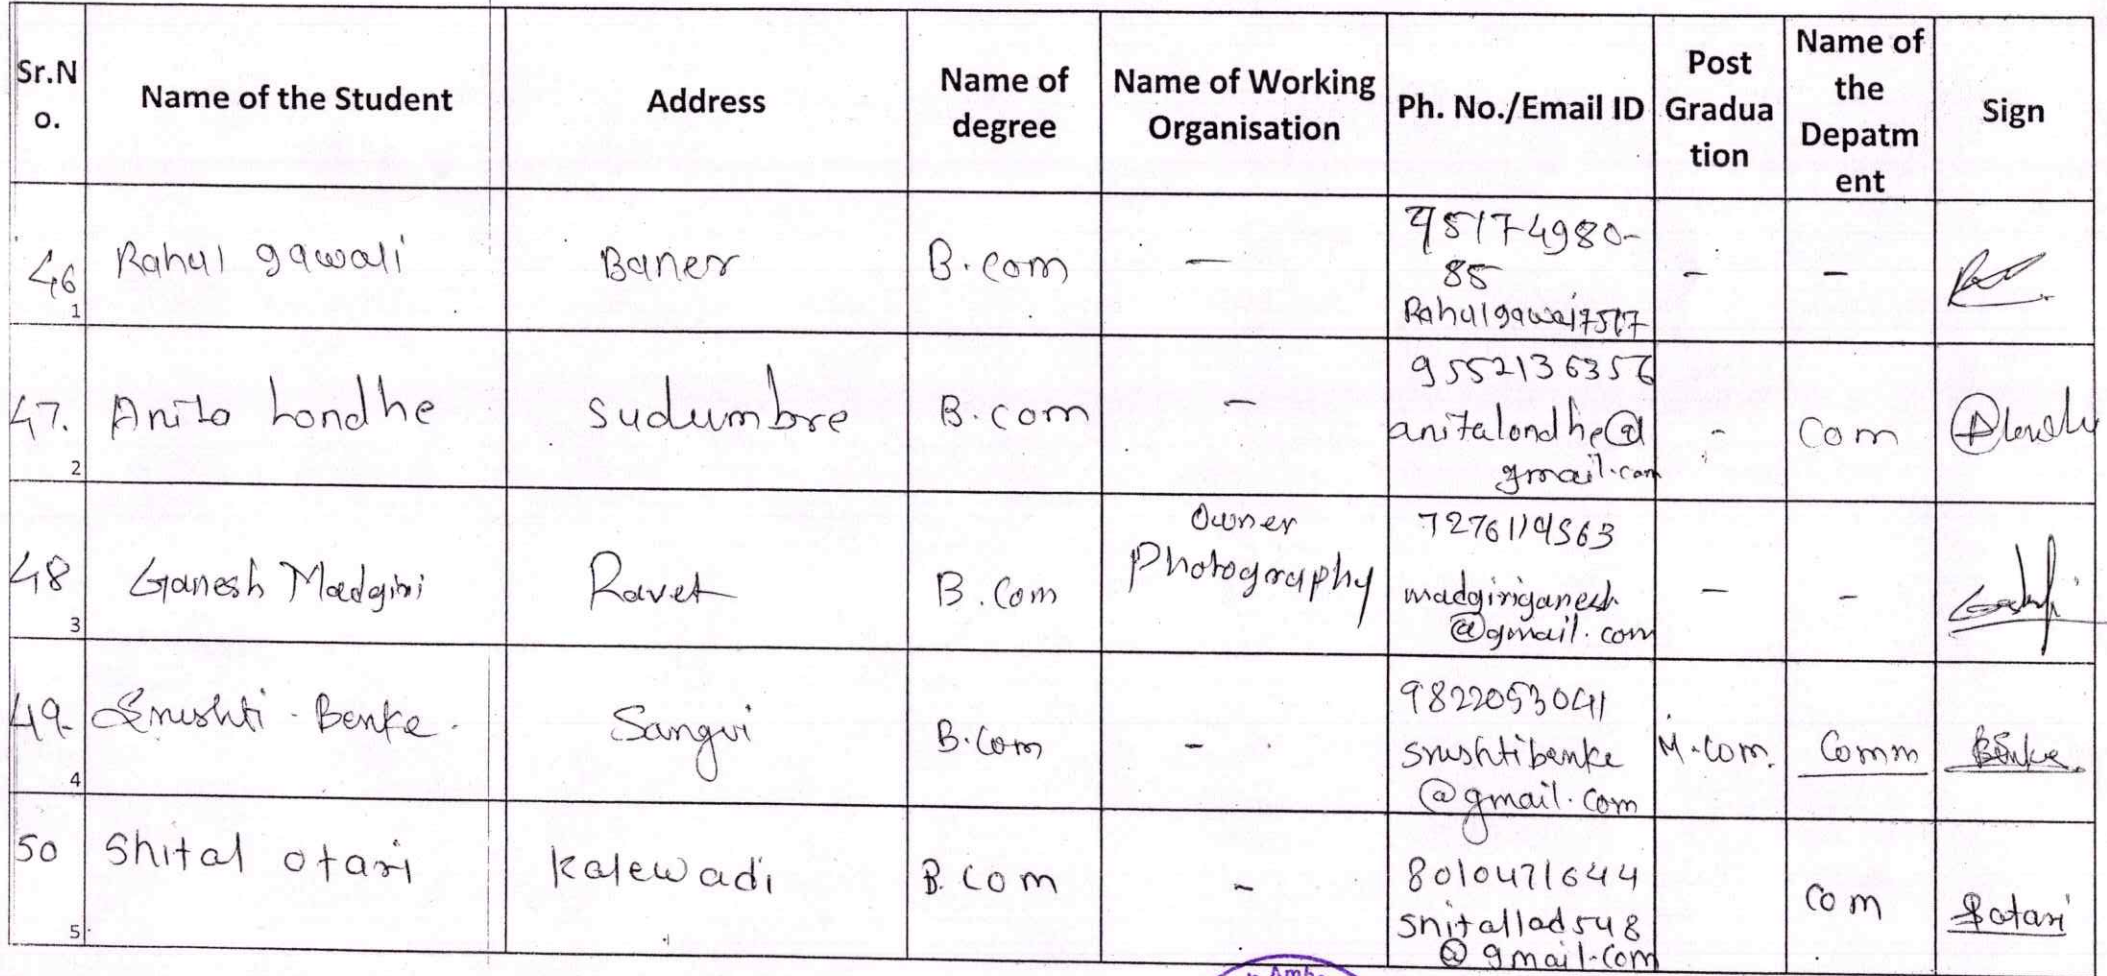 Sr.N
o.
Name of the Student
Address
Name of
degree
Name of Working
Organisation
Ph. No./Email ID
Post
Gradua
tion
Name of
the
Depatm
ent
Sign
46
1
Rahul gawali
Baner
B.com
-
75174980-
85
Rahulgawai7517
-
-
47.
2
Anita Londhe
Sudumbre
B.com
-
9552136356
anitalondhe@
gmail.com
-
Com
Alondhe
48
3
Ganesh Madgiri
Ravet
B.Com
Owner
Photography
7276119563
madgiriganesh
@gmail.com
-
-
49.
4
Srushti - Benke.
Sangvi
B.Com
-
9822053041
srushtibenke
@gmail.com
M.com.
Comm
Benke
50
5
Shital otari
kalewadi
B.Com
-
8010471644
shitallad548
@gmail.com
Com
Sotari
Amb